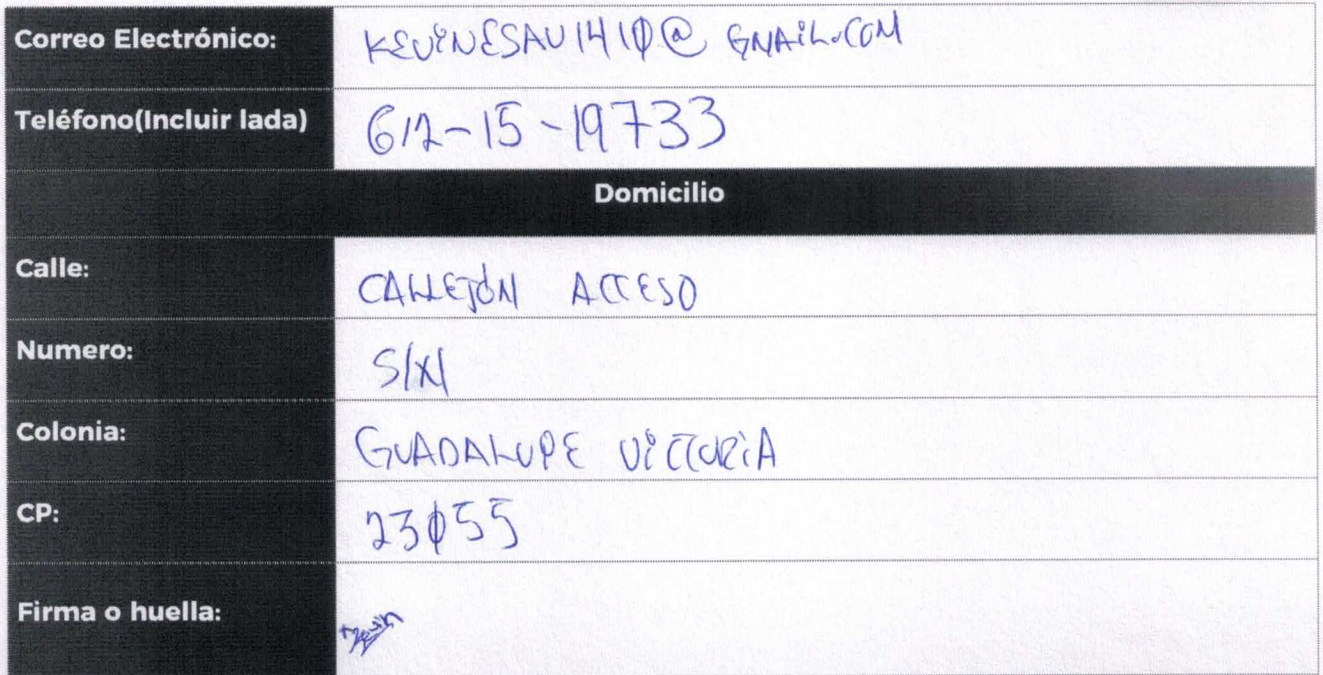 Correo Electrónico: KEVINESAU1410@GMAIL.COM
Teléfono(Incluir lada) 612-15-19733
Domicilio
Calle: CALLEJÓN ACCESO
Numero: S/N
Colonia: GUADALUPE VICTORIA
CP: 23055
Firma o huella: Kevin